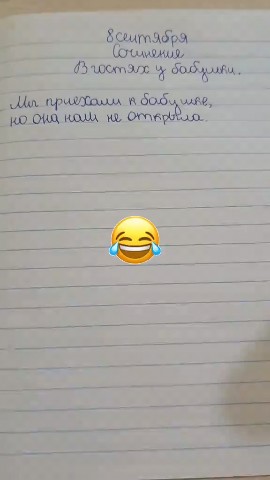 8 сентября
Сочинение
В гостях у бабушки.
Мы приехали к бабушке,
но она нам не открыла.